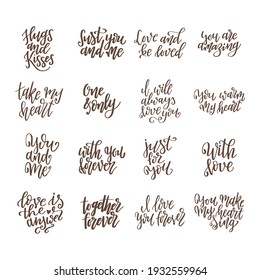 Hugs
and
Kisses
Just you
and me
Love and
be loved
You are
amazing
take my
heart
One
&only
I will
always
love you
You warm
my heart
You
and
Me
with you
forever
just
for
you
With
love
love is
the
answer
together
forever
I love
you forever
You make
my heart
sing
shutterstock.com · 1932559964